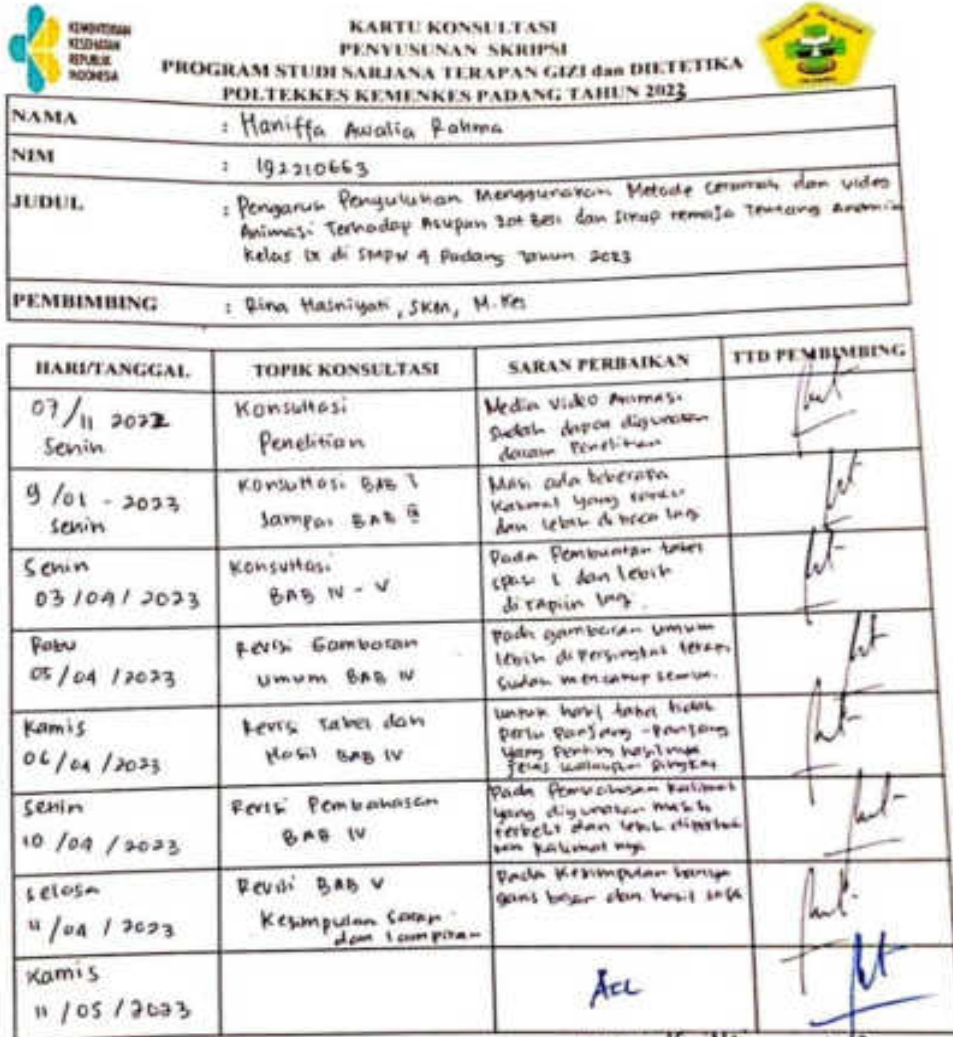 KEMENTERIAN
KESEHATAN
REPUBLIK
INDONESIA
KARTU KONSULTASI
PENYUSUNAN SKRIPSI
PROGRAM STUDI SARJANA TERAPAN GIZI dan DIETETIKA
POLTEKKES KEMENKES PADANG TAHUN 2023
NAMA : Haniffa Awalia Rahma
NIM : 192210663
JUDUL : Pengaruh Penyuluhan Menggunakan Metode ceramah dan video
Animasi Terhadap Asupan Zat Besi dan Sikap remaja Tentang Anemia
Kelas IX di SMPN 4 Padang Tahun 2023
PEMBIMBING : Rina Hasniyati, SKM, M.Kes
HARI/TANGGAL TOPIK KONSULTASI SARAN PERBAIKAN TTD PEMBIMBING
07/11 2022
Senin
Konsultasi
Penelitian
Media Video Animasi
Sudah dapat digunakan
dalam Penelitian
9/01 - 2023
Senin
Konsultasi BAB I
Sampai BAB
Masi ada beberapa
Kalimat yang
dan lebih di baca lagi
Senin
03/04/2023
Konsultasi
BAB IV - V
Pada Pembuatan tabel
spasi 1 dan lebih
di rapiin lagi.
Rabu
05/04/2023
Revisi Gambaran
umum BAB IV
Pada gambaran umum
lebih di persingkat tetapi
sudah mencakup semua.
Kamis
06/04/2023
Revisi Tabel dan
Hasil BAB IV
untuk hasil tabel tidak
perlu panjang-panjang
yang penting hasilnya
jelas walaupun singkat
Senin
10/04/2023
Revisi Pembahasan
BAB IV
Pada Pembahasan kalimat
yang digunakan masih
dan lebih
kalimat nya
Selasa
11/04/2023
Revisi BAB V
Kesimpulan Saran
dan Lampiran
Pada Kesimpulan hanya
garis besar dan hasil saja
Kamis
11/05/2023
Acc